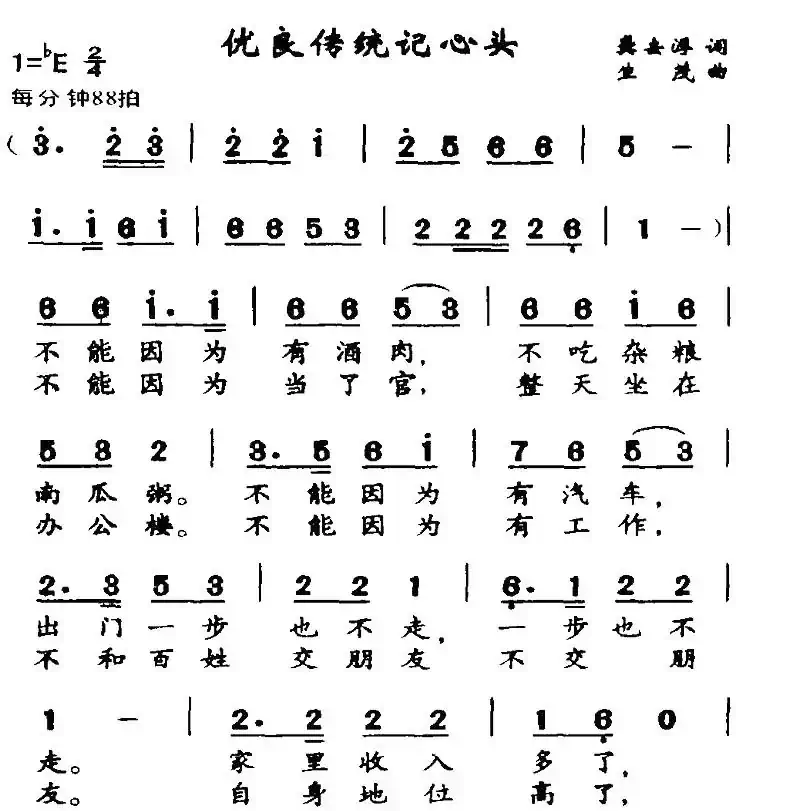 优良传统记心头
1=♭E 2/4
词
曲
每分钟88拍
( 3̇. 2̇ 3̇ | 2̇ 2̇ 1̇ | 2̇ 5 6 6 | 5 – |
1̇. 1̇ 6 1̇ | 6 6 5 3 | 2 2 2 2 6̣ | 1 – ) |
6 6 1̇. 1̇ | 6 6 5 3 | 6 6 1̇ 6
不能因为 有酒肉, 不吃杂粮
不能因为 当了官, 整天坐在
5 3 2 | 3. 5 6 1̇ | 7 6 5 3 |
南瓜粥。 不能因为 有汽车,
办公楼。 不能因为 有工作,
2. 3 5 3 | 2 2 1 | 6̣. 1 2 2 |
出门一步 也不走, 一步也不
不和百姓 交朋友, 不交朋
1 – | 2. 2 2 2 | 1 6̣ 0 |
走。 家里收入 多了,
友。 自身地位 高了,